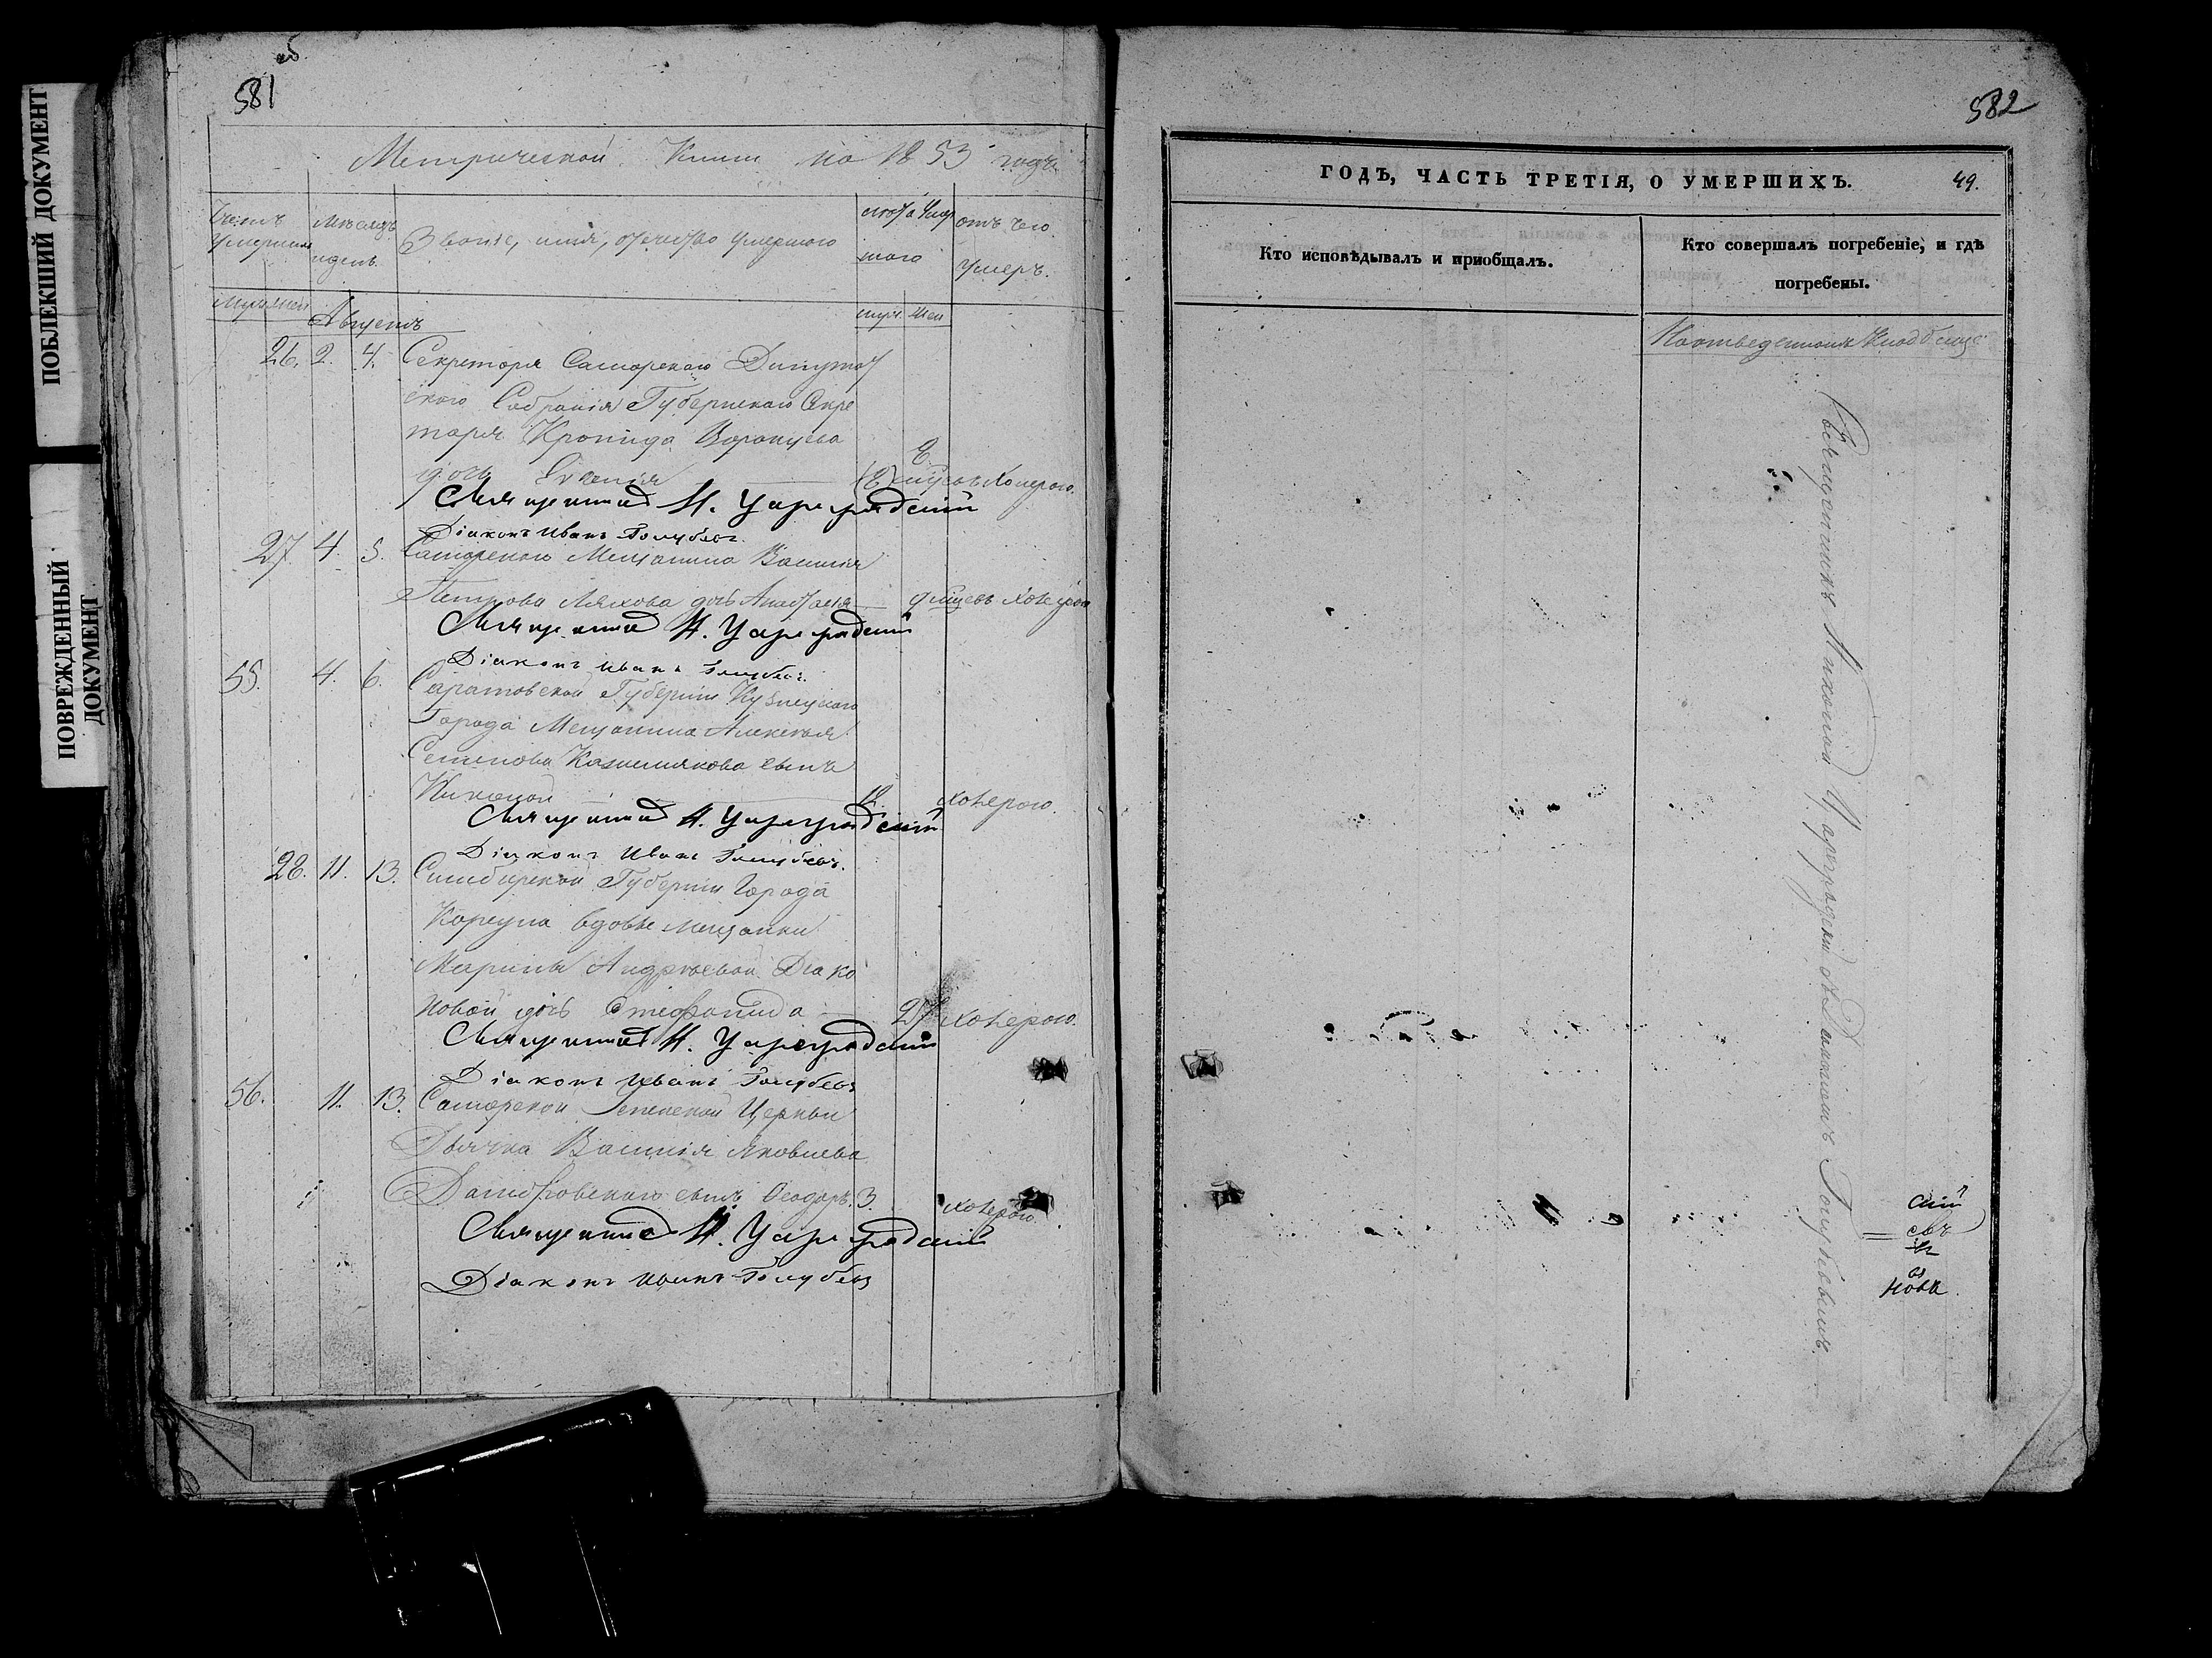 ПОБЛЕКШИЙ ДОКУМЕНТ
ПОВРЕЖДЕННЫЙ
ДОКУМЕНТ
581
Метрической Книги на 1853 годъ
Мѣсяцъ
и день
Званіе, имя, отечество умершаго
отъ чего
умеръ.
Августъ
26. 2. 4. Секретаря Самарскаго Депутат
скаго Собранія Губернскаго Секре
таря Кронида Воронцева
дочь Евгенія
Священникъ Н. Цареградскій
Діаконъ Иванъ Голубевъ
27 4. 5. Самарскаго Мещанина Василія
Петрова Ляхова дочь Анастасія холерою
Священникъ Н. Цареградскій
Діаконъ Иванъ Голубевъ
55. 4. 6. Саратовской Губерніи Кузнецкаго
Города Мещанина Алексѣя
Семенова сынъ
Николай холерою.
Священникъ Н. Цареградскій
Діаконъ Иванъ Голубевъ
28. 11. 13. Симбирской Губерніи Города
Корсуна вдовы мещанки
Марины Андреевой Дьяко
новой дочь Стефанида 27 холерою.
Священникъ Н. Цареградскій
Діаконъ Иванъ Голубевъ
56. 11. 13. Самарской Успенской Церкви
Дьячка Василія Яковлева
сынъ Ѳеодоръ. 3. холерою.
Священникъ Н. Цареградскій
Діаконъ Иванъ Голубевъ
582
ГОДЪ, ЧАСТЬ ТРЕТІЯ, О УМЕРШИХЪ. 49.
Кто исповѣдывалъ и пріобщалъ.
Кто совершалъ погребеніе, и гдѣ
погребены.
На отведенномъ кладбище
Священникъ Николай Цареградскій съ Діакономъ Голубевымъ.
скій
евъ
нова